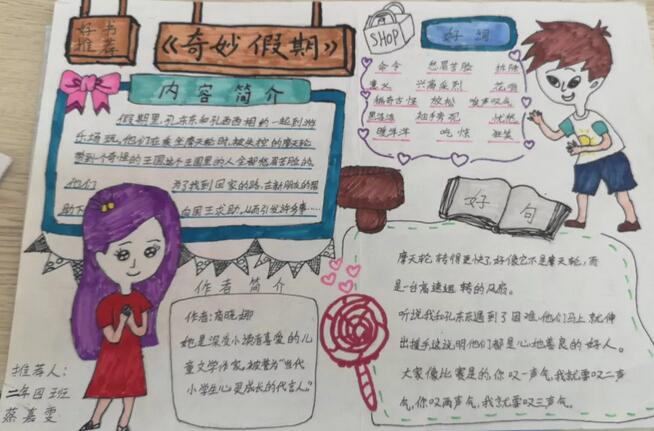 好书
推荐
《奇妙假期》
内容简介
假期里,孔东东和孔西西相约一起到游
乐场玩。他们在乘坐摩天轮时,被失控的摩天轮
带到个奇怪的王国这个王国里的人全都愁眉苦脸的,
他们 为了找到回家的路,在新朋友的帮
助下 向国王求助。从而引发许多事……
作者简介
作者:商晓娜
她是深受小读者喜爱的儿
童文学作家,被誉为"当代
小学生心灵成长的代言人。"
推荐人:
二年四班
蔡嘉雯
SHOP
好词
命令 愁眉苦脸 排除
意义 兴高采烈
稀奇古怪 放松 唉声叹气
黑漆漆 袖手旁观 忧愁
暖洋洋 吃惊
好句
摩天轮转得更快了好像它不是摩天轮,而
是一台高速运转的风扇。
听说我和孔东东遇到了困难他们马上就伸
出援手这说明他们都是心地善良的好人。
大家像比赛是的,你叹一声气,我就要叹二声
气,你叹两声气,我就要叹三声气。